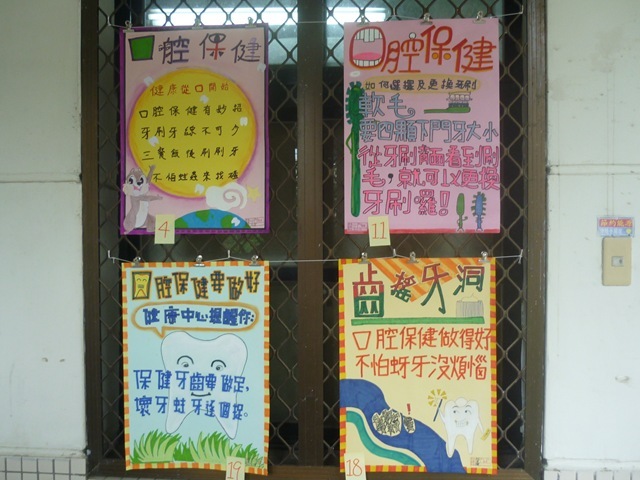 口腔保健
健康從口開始
口腔保健有妙招
牙刷牙線不可少
三餐飯後刷刷牙
不怕蛀蟲來找碴
4
口腔保健
如何選擇及更換牙刷
軟毛,
要四顆下門牙大小
從牙刷背面看到刷
毛,就可以更換
牙刷囉!
11
口腔保健要做好
健康中心提醒你:
保健牙齒要做足,
壞牙蛀牙逐個捉。
19
齒搖牙洞
口腔保健做得好
不怕蚜牙沒煩惱
18